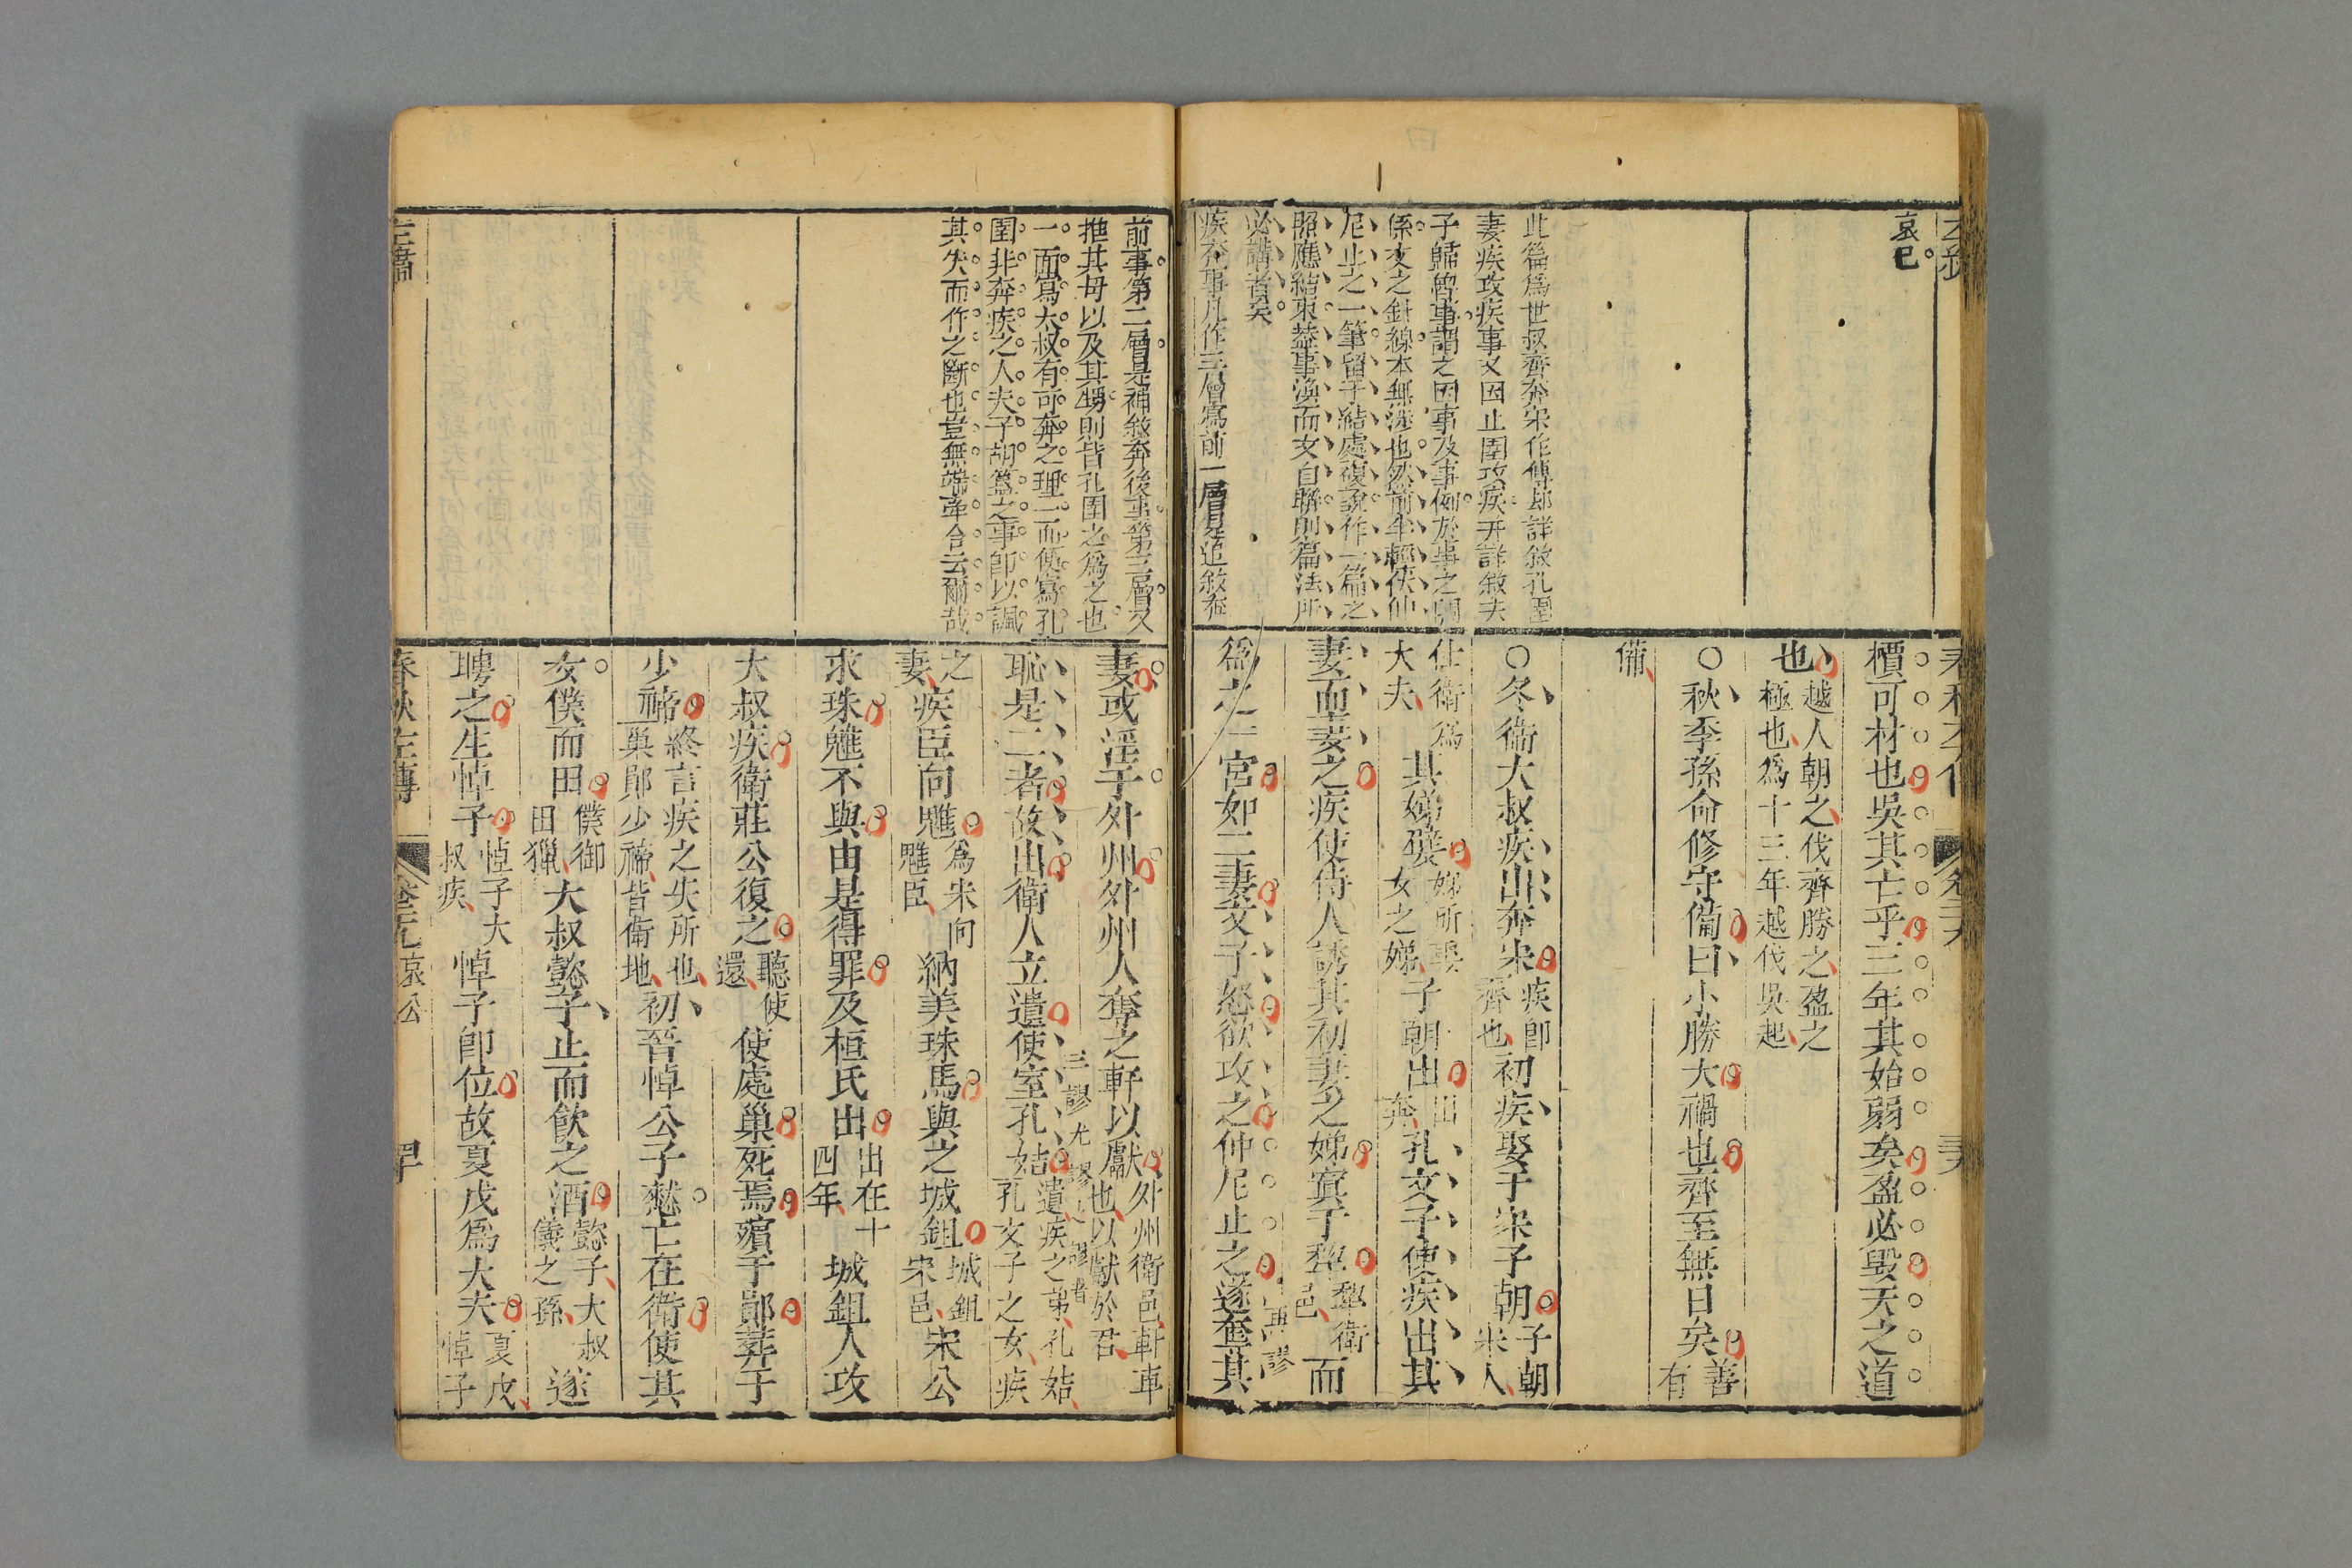 哀已
此篇爲世叔齊奔宋作傳却詳敘孔圉
妻疾攻疾事又因止圉攻疾幷詳敘夫
子歸魯事謂之因事及事例於事之關
係文之針線本無涉也然前半輕佚仲
尼止之一筆留于結處複說作一篇之
照應結束蓋事渙而文自聯則篇法所
必講者矣
疾奔事凡作三層寫前一層是追敘奔
檟可材也吳其亡乎三年其始弱矣盈必毀天之道
也越人朝之伐齊勝之盈之極也爲十三年越伐吳起
○秋季孫命修守備曰小勝大禍也齊至無日矣善有
備
○冬衞大叔疾出奔宋疾卽齊也初疾娶于宋子朝子朝宋人
仕衞爲大夫其娣嬖娣所娶女之娣子朝出出奔孔文子使疾出其
妻而妻之疾使侍人誘其初妻之娣寘于犂犂衞邑而
爲之一宮如二妻文子怒欲攻之仲尼止之遂奪其
再謬
前事第二層是補敘奔後事第三層又
推其母以及其甥則皆孔圉之爲之也
一面寫太叔有可奔之理一面便寫孔
圉非奔疾之人夫子胡簋之事卽以諷
其失而作之斷也豈無端牽合云爾哉
妻或淫于外州外州人奪之軒以獻外州衞邑軒車也以獻於君
三謬尤謬之謬者
恥是二者故出衞人立遺使室孔姞遺疾之弟孔姞孔文子之女疾
之妻疾臣向魋爲宋向魋臣納美珠焉與之城鉏城鉏宋邑宋公
求珠魋不與由是得罪及桓氏出出在十四年城鉏人攻
大叔疾衞莊公復之聽使還使處巢死焉殯于鄖葬于
少禘終言疾之失所也巢鄖少禘皆衞地初晉悼公子憖亡在衞使其
女僕而田僕御田獵大叔懿子止而飮之酒懿子大叔儀之孫遂
聘之生悼子悼子大叔疾悼子卽位故夏戊爲大夫夏戊悼子
春秋左傳
哀公